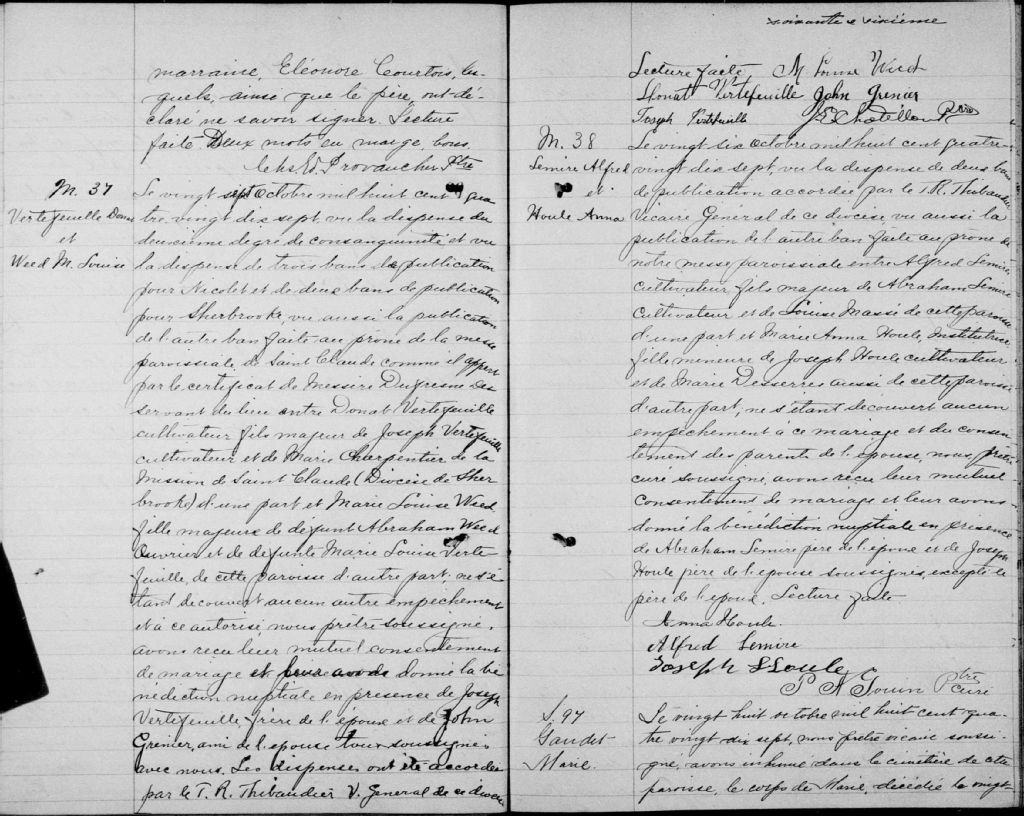 marraine, Eléonore Courtois, les-
quels, ainsi que le père, ont dé-
claré ne savoir signer. Lecture
faite Deux mots en marge, bons.
Chs Ed. Provancher Ptre
M. 37
Vertefeuille Donat
et
Weed M. Louise
Le vingt sept Octobre mil huit cent qua
tre, vingt dix sept, vu la dispense du
deuxième degré de consanguinité et vu
la dispense de trois bans de publication
pour Nicolet et de deux bans de publication
pour Sherbrooke, vu aussi la publication
de l'autre ban faite au prone de la messe
paroissiale de Saint Claude comme il appert
par le certificat de Messire Dufresne des
servant du lieu entre Donat Vertefeuille
cultivateur fils majeur de Joseph Vertefeuille
cultivateur et de Marie Charpentier de la
Mission de Saint Claude (Diocèse de Sher
brooke) d'une part et Marie Louise Weed
fille majeure de defunt Abraham Weed
Ouvrier et de defunte Marie Louise Verte
feuille, de cette paroisse d'autre part, ne s'é
tant decouvert aucun autre empechement
et à ce autorisé, nous prêtre soussigné,
avons recu leur mutuel consentement
de mariage et leur avons donné la bé
nédiction nuptiale en presence de Joseph
Vertefeuille frère de l'époux et de John
Grenier, ami de l'epouse tous soussignés
avec nous. Les dispenses ont été accordées
par le T. R. Thibaudier V. General de ce diocèse
soixante e sixième
Lecture faite, M Louise Weed
Donat Vertefeuille John Grenier
Joseph Vertefeuille
J E Chatillon Ptre
M. 38
Lemire Alfred
et
Houle Anna
Le vingt six Octobre mil huit cent quatre
vingt dix sept, vu la dispense de deux bans
de publication accordée par le T. R. Thibaudier
Vicaire General de ce diocèse vu aussi la
publication de l'autre ban faite au prône de
notre messe paroissiale entre Alfred Lemire
cultivateur fils majeur de Abraham Lemire
cultivateur et de Louise Massé de cette paroisse
d'une part et Marie Anna Houle, Institutrice
fille mineure de Joseph Houle cultivateur
et de Marie Desserres aussi de cette paroisse
d'autre part, ne s'étant découvert aucun
empêchement à ce mariage et du consen
tement des parents de l'épouse, nous, prêtre
curé soussigné, avons recu leur mutuel
consentement de mariage et leur avons
donné la bénédiction nuptiale en présence
de Abraham Lemire père de l'époux et de Joseph
Houle père de l'epouse soussignés, excepté le
père de l'époux. Lecture faite
Anna Houle
Alfred Lemire
Joseph Houle
P A Gouin Ptre
curé
S. 97
Gaudet
Marie.
Le vingt huit octobre mil huit cent qua-
tre vingt dix sept, nous prêtre vicaire soussi-
gné, avons inhumé dans le cimétière de cette
paroisse, le corps de Marie, décédée le vingt-